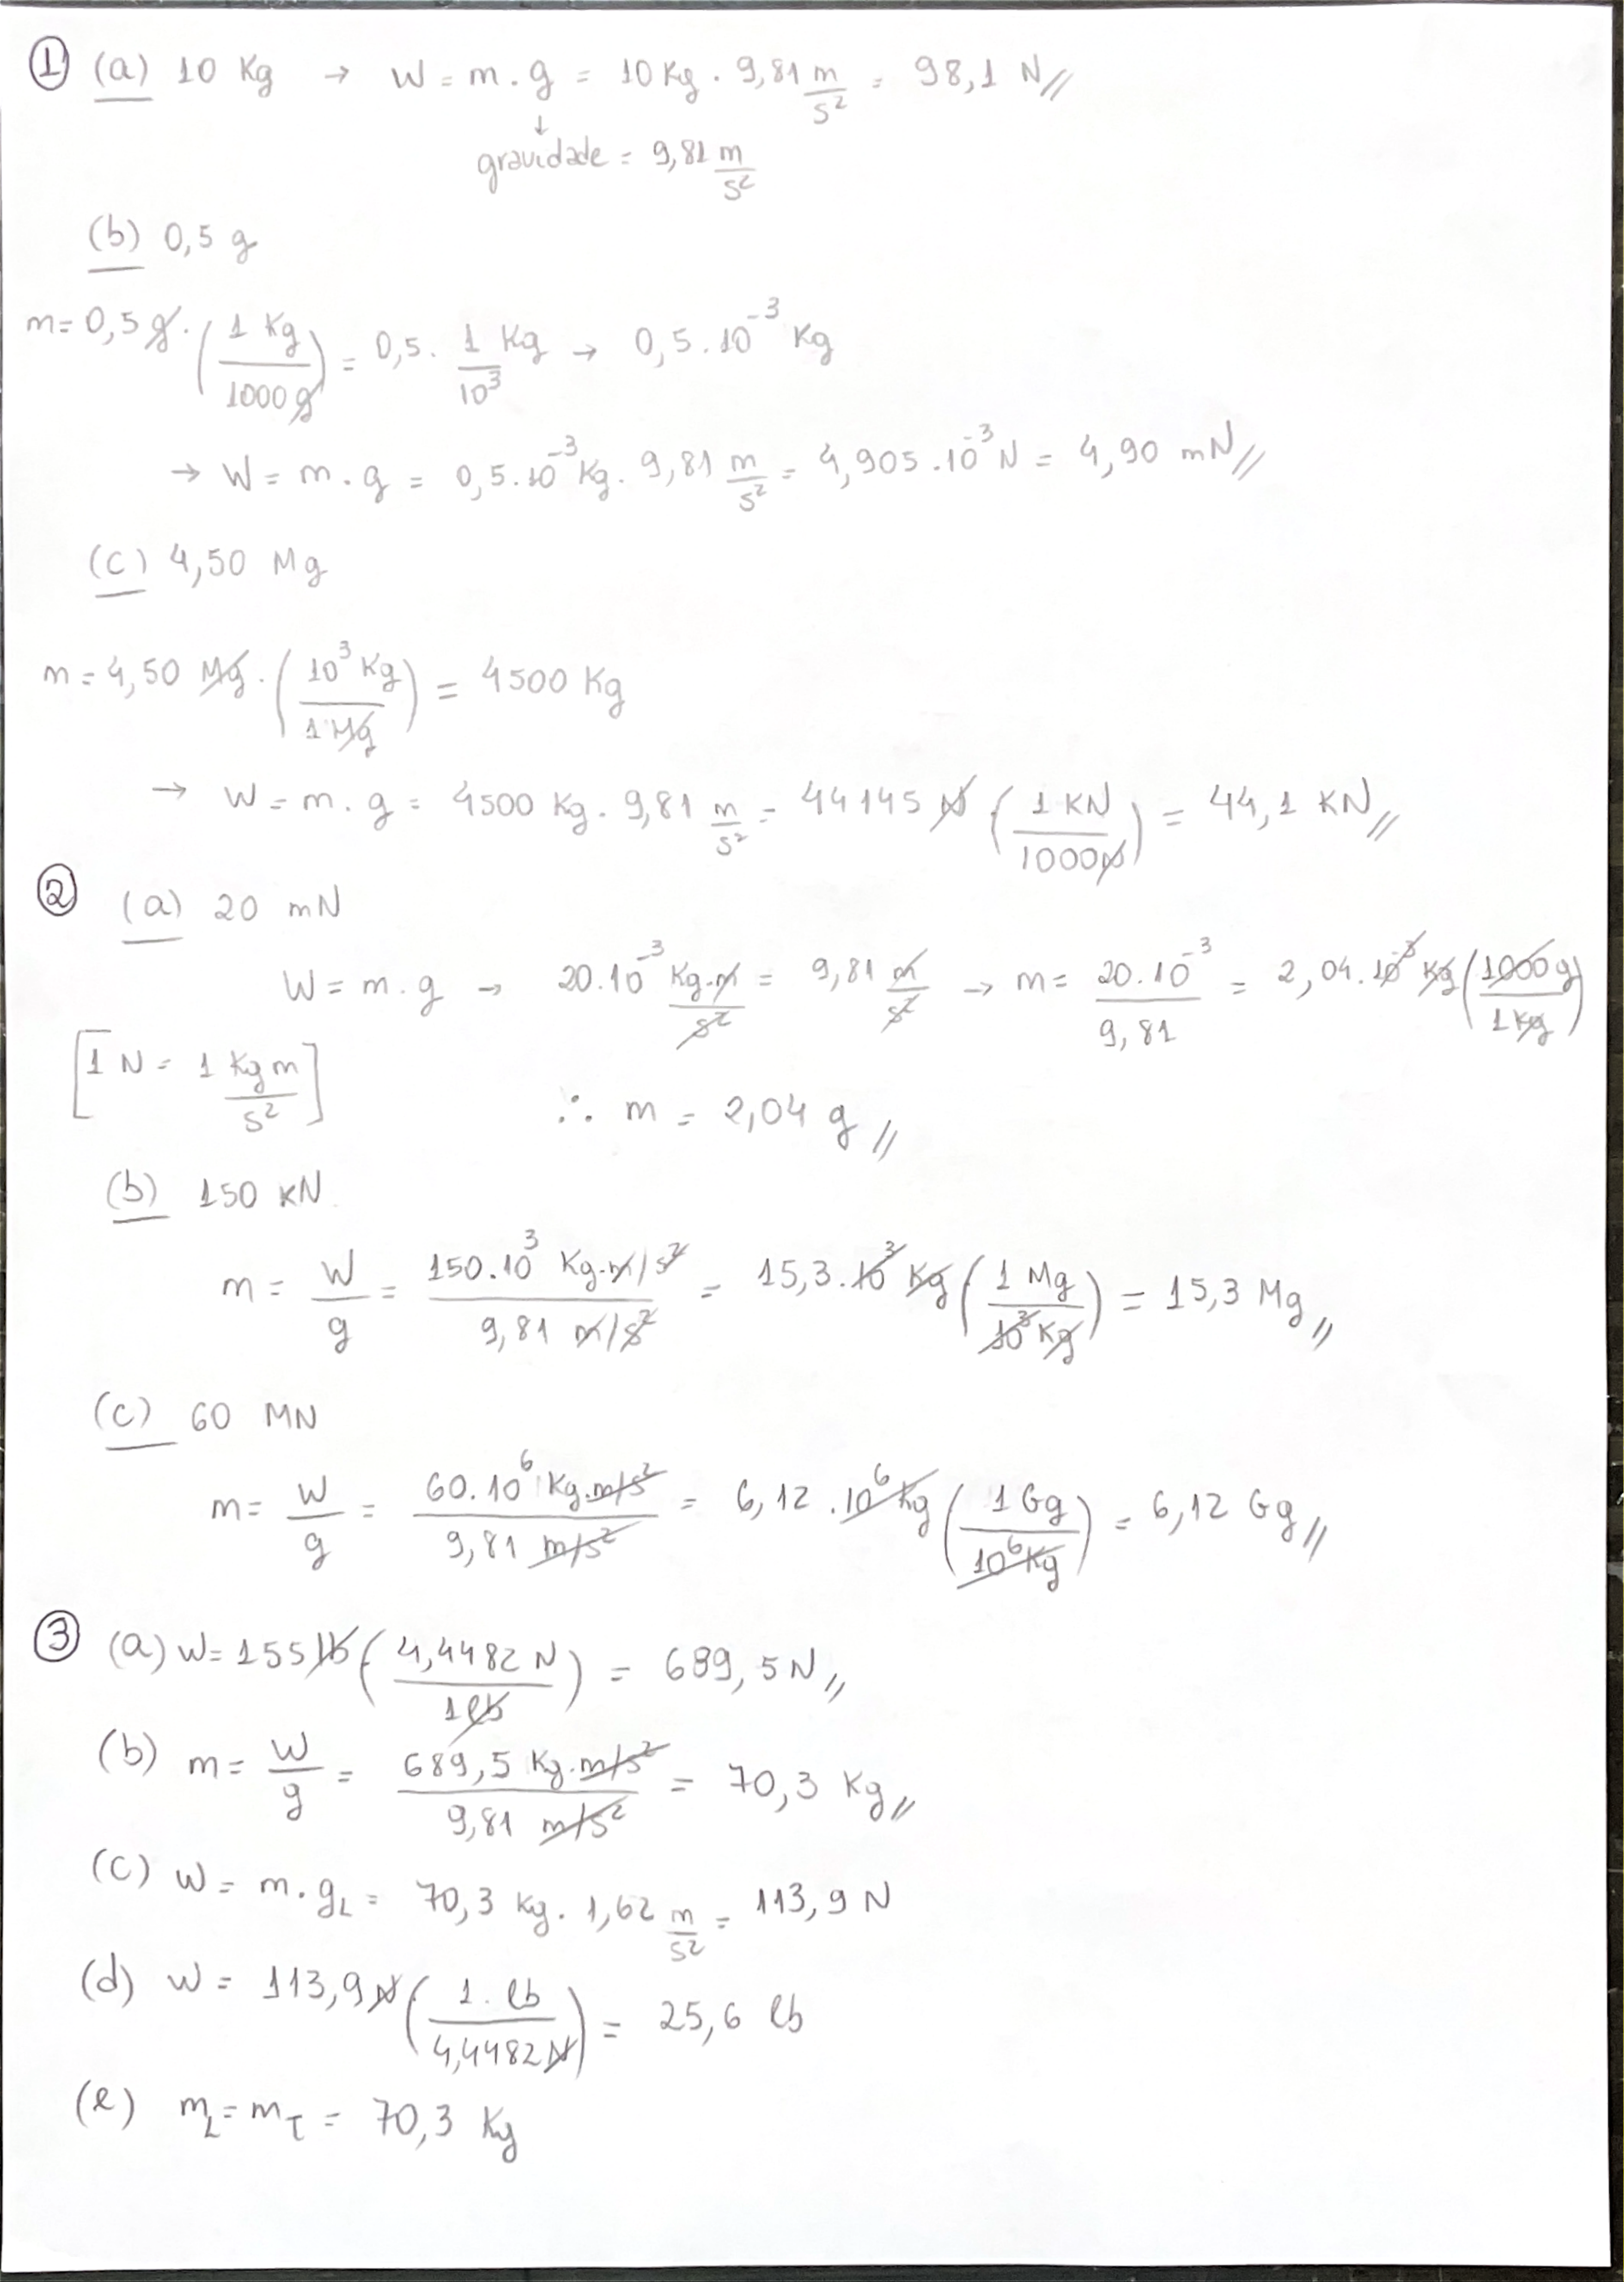 ① (a) 10 Kg → W = m . g = 10 Kg . 9,81 m/s² = 98,1 N //
↓
gravidade = 9,81 m/s²
(b) 0,5 g
m = 0,5 g . (1 Kg / 1000 g) = 0,5 . 1/10³ Kg → 0,5 . 10⁻³ Kg
→ W = m . g = 0,5 . 10⁻³ Kg . 9,81 m/s² = 4,905 . 10⁻³ N = 4,90 mN //
(c) 4,50 Mg
m = 4,50 Mg . (10³ Kg / 1 Mg) = 4500 Kg
→ W = m . g = 4500 Kg . 9,81 m/s² = 44145 N (1 KN / 1000 N) = 44,1 KN //
② (a) 20 mN
W = m . g → 20 . 10⁻³ Kg . m/s² = 9,81 m/s² → m = 20 . 10⁻³ / 9,81 = 2,04 . 10⁻³ Kg (1000 g / 1 Kg)
[1 N = 1 Kg m/s²]
∴ m = 2,04 g //
(b) 150 KN
m = W/g = 150 . 10³ Kg . m/s² / 9,81 m/s² = 15,3 . 10³ Kg (1 Mg / 10³ Kg) = 15,3 Mg //
(c) 60 MN
m = W/g = 60 . 10⁶ Kg . m/s² / 9,81 m/s² = 6,12 . 10⁶ Kg (1 Gg / 10⁶ Kg) = 6,12 Gg //
③ (a) W = 155 lb (4,4482 N / 1 lb) = 689,5 N //
(b) m = W/g = 689,5 Kg . m/s² / 9,81 m/s² = 70,3 Kg //
(c) W = m . g_L = 70,3 Kg . 1,62 m/s² = 113,9 N
(d) W = 113,9 N (1 . lb / 4,4482 N) = 25,6 lb
(e) m_L = m_T = 70,3 Kg